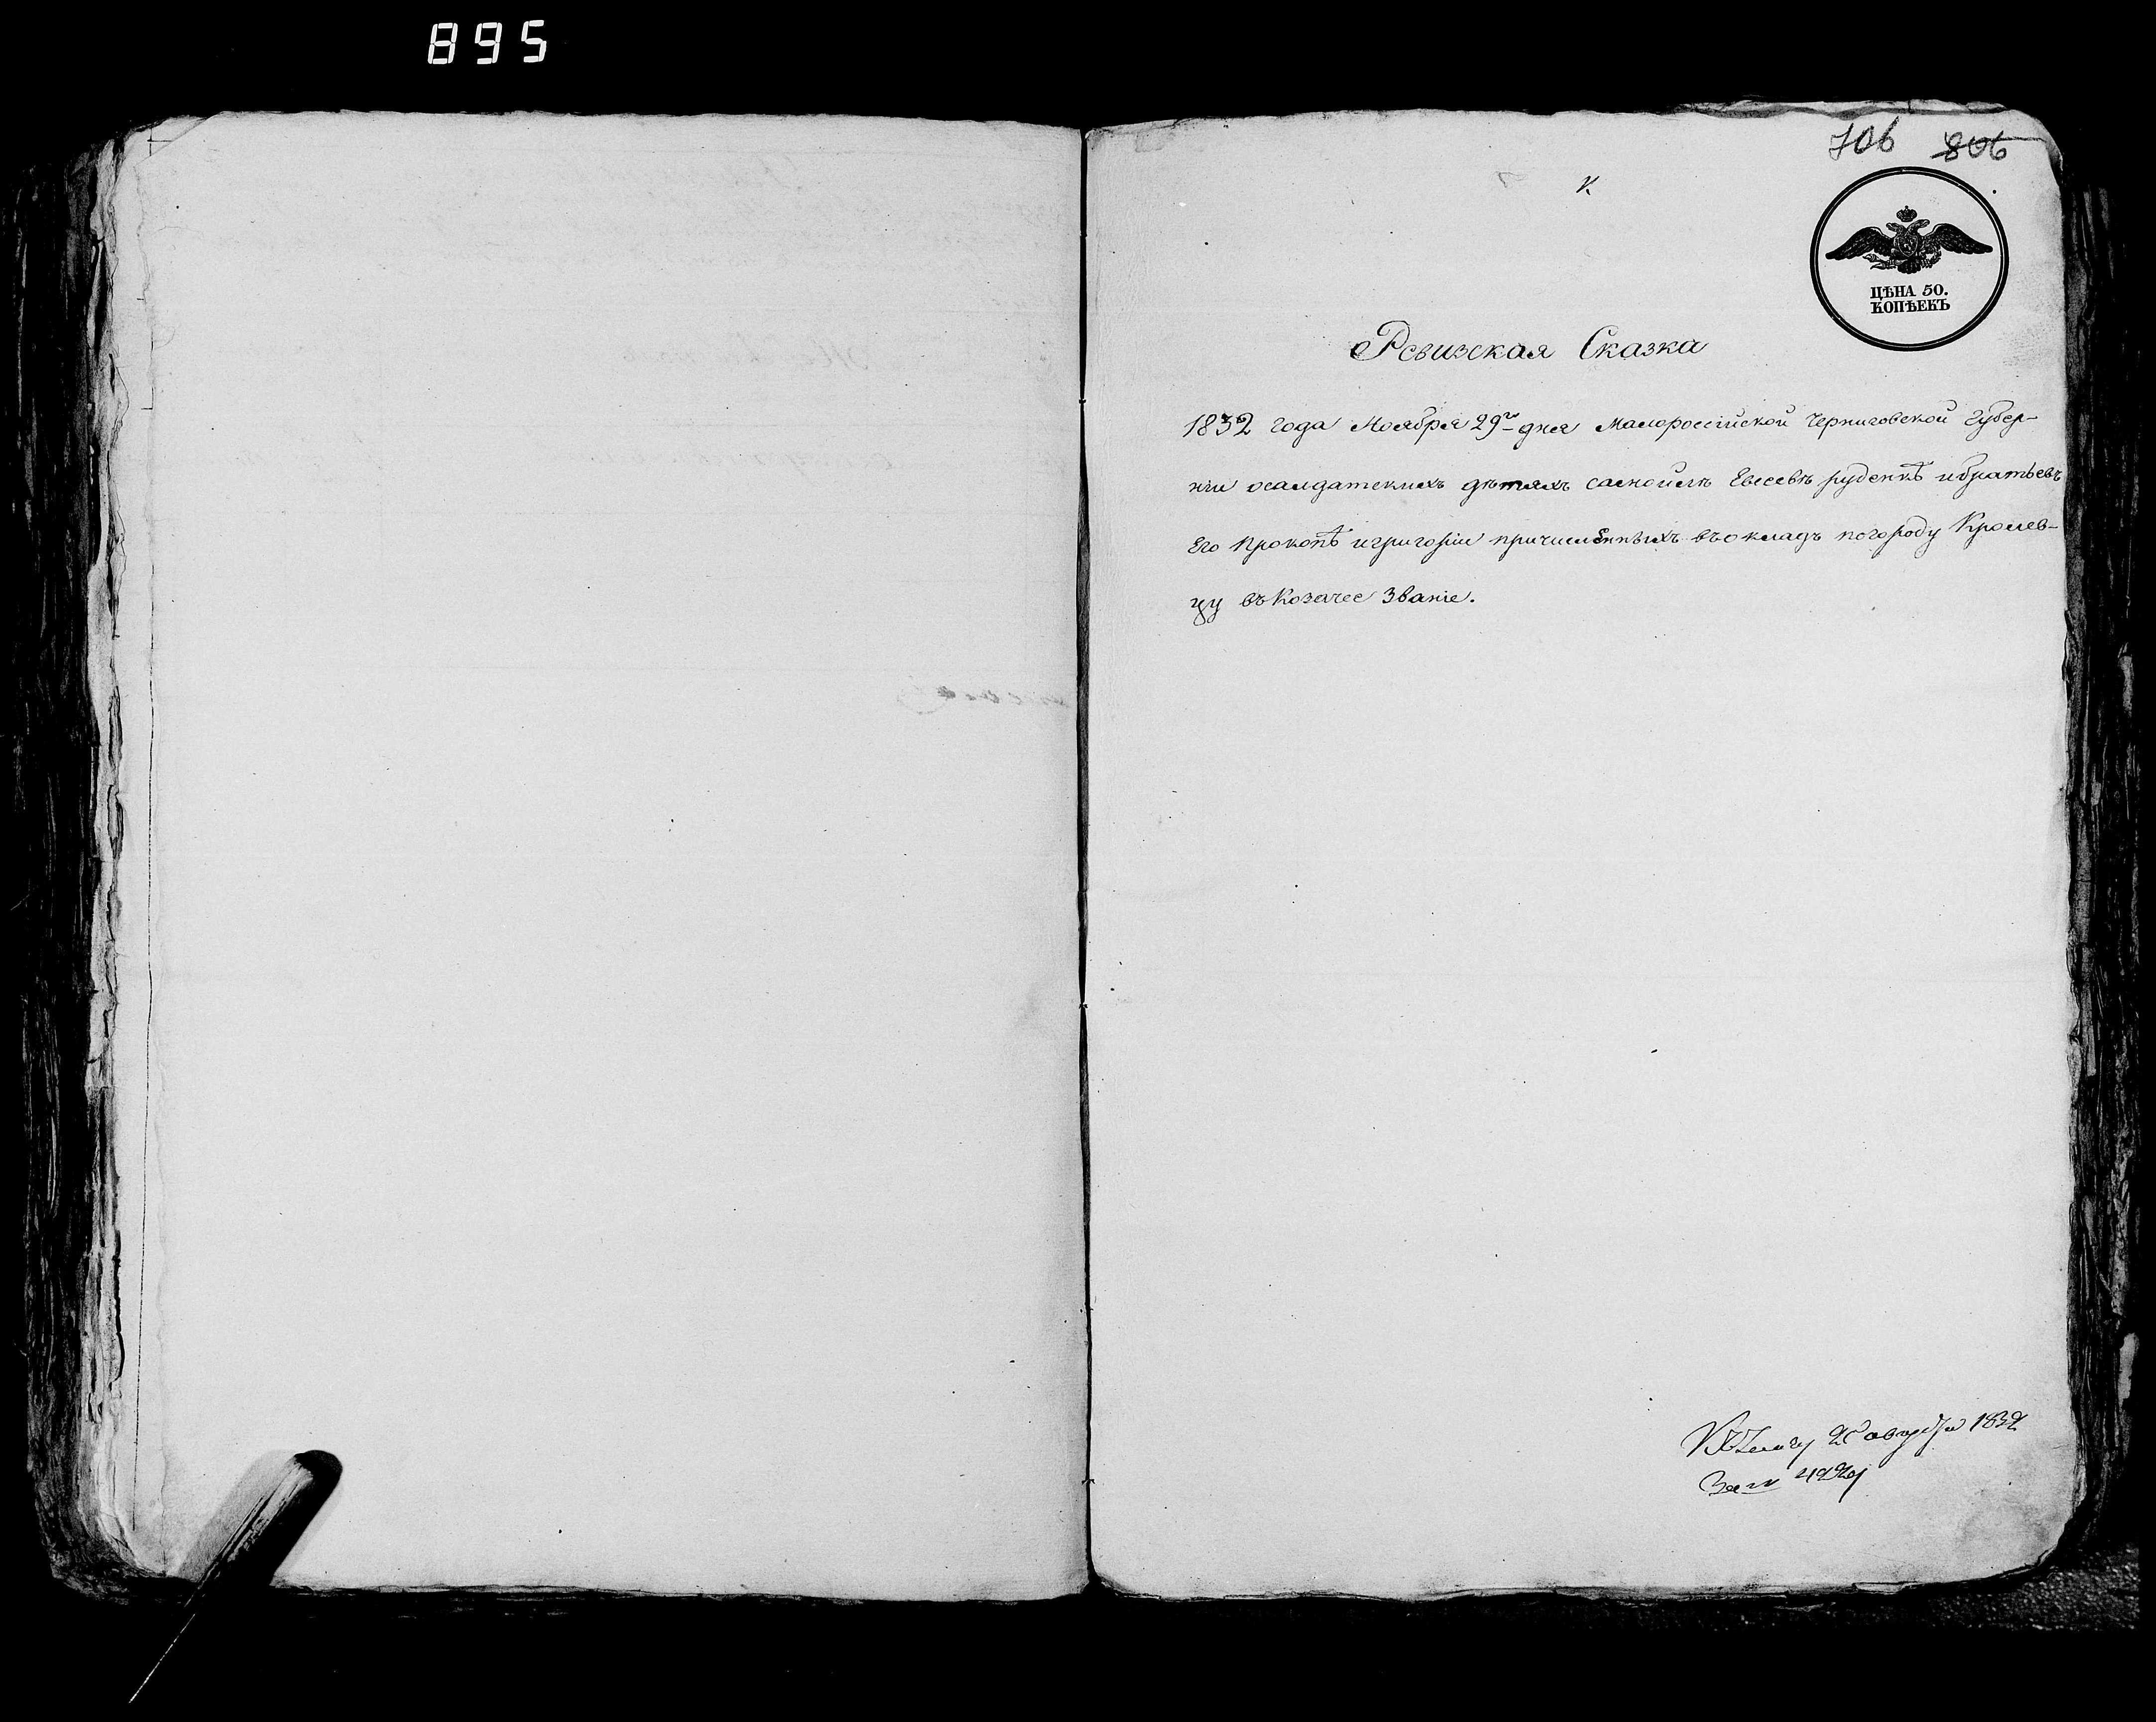 895
706 806
К
ЦѢНА 50.
КОПѢЕКЪ
Ревизская Сказка
1832 года Ноября 29го дня Малороссійской Черниговской Губер-
ніи осалдатскихъ дѣтяхъ Евсевѣ руденкѣ ибратьевъ
Его Прокопѣ игригоріи причисленныхъ въокладъ погороду Кролев-
цу въКозачее Званіе.
1832